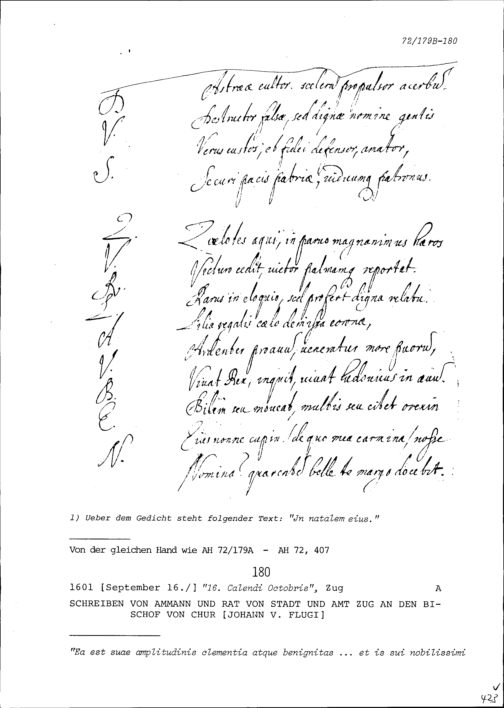 72/179B-180
Astrææ cultor, scelerũ propulsor acerbus.
Destructor falsæ, sed dignæ nomine gentis
Verus custos, et fidei defensor, amator,
Securi pacis patriæ, patronus.
D.
V.
S.
Zelotes in paruo magnanimus hæros
cedit, victor palmamq reportat.
Rarus in eloquio, sed profert digna relatu.
regalis cælo demissa corona,
Ardenter veneratur more suorũ,
Viuat Rex, inquit, viuat Ludouicus in æuũ.
Bilem seu moueat, multis seu
nonne cupis? de quo mea carmina, nosse
Nomina? belle te margo docebit.
Z
V.
R.
L
A
V.
B.
E
N.
1) Ueber dem Gedicht steht folgender Text: "Jn natalem eius."
Von der gleichen Hand wie AH 72/179A - AH 72, 407
180
1601 [September 16./] "16. Calendi Octobris", Zug A
SCHREIBEN VON AMMANN UND RAT VON STADT UND AMT ZUG AN DEN BI-
SCHOF VON CHUR [JOHANN V. FLUGI]
"Ea est suae amplitudinis clementia atque benignitas ... et is sui nobilissimi
428